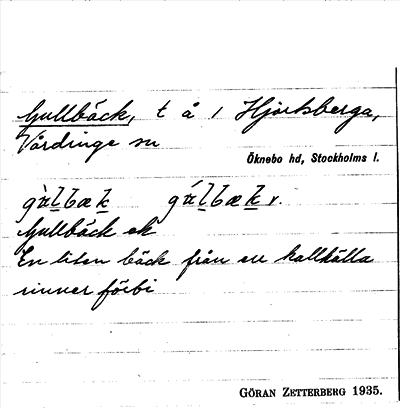 Gullbäck, t å 1 Hjortsberga,
Vårdinge sn
Öknebo hd, Stockholms l.
Gullbäck ek
En liten bäck från en kallkälla
rinner förbi
GÖRAN ZETTERBERG 1935.